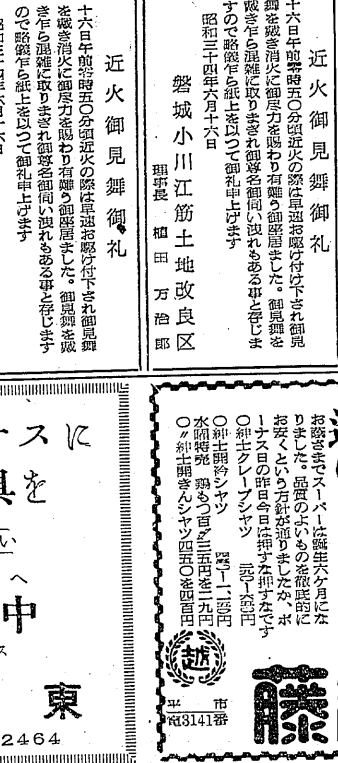 近火御見舞御礼
十六日午前零時五〇分頃近火の際は早速お駆け付下され御見
舞を戴き消火に御尽力を賜わり有難う御座居ました。御見舞を
戴き乍ら混雑に取りまぎれ御尊名御伺い洩れもある事と存じま
すので略儀乍ら紙上を以つて御礼申上げます
昭和三十四年六月十六日
磐城小川江筋土地改良区
理事長 植田万治郎
近火御見舞御礼
十六日午前零時五〇分頃近火の際は早速お駆け付下され御見舞
を戴き消火に御尽力を賜わり有難う御座居ました。御見舞を戴
き乍ら混雑に取りまぎれ御尊名御伺い洩れもある事と存じます
ので略儀乍ら紙上を以つて御礼申上げます
お蔭さまでスーパーは誕生六ケ月にな
りました。品質のよいものを徹底的に
お安くという方針が通りましたか、ボ
ーナス日の昨日今日は押すな押すなです
〇紳士クレープシャツ
〇紳士開衿シャツ
水曜特売 鶏もつ百匁三五円を二九円
〇〃紳士開きんシャツ四五〇を四百円
越
平市
電3141番
藤
ナスに
具を
い
へ
中
ス
東
2464